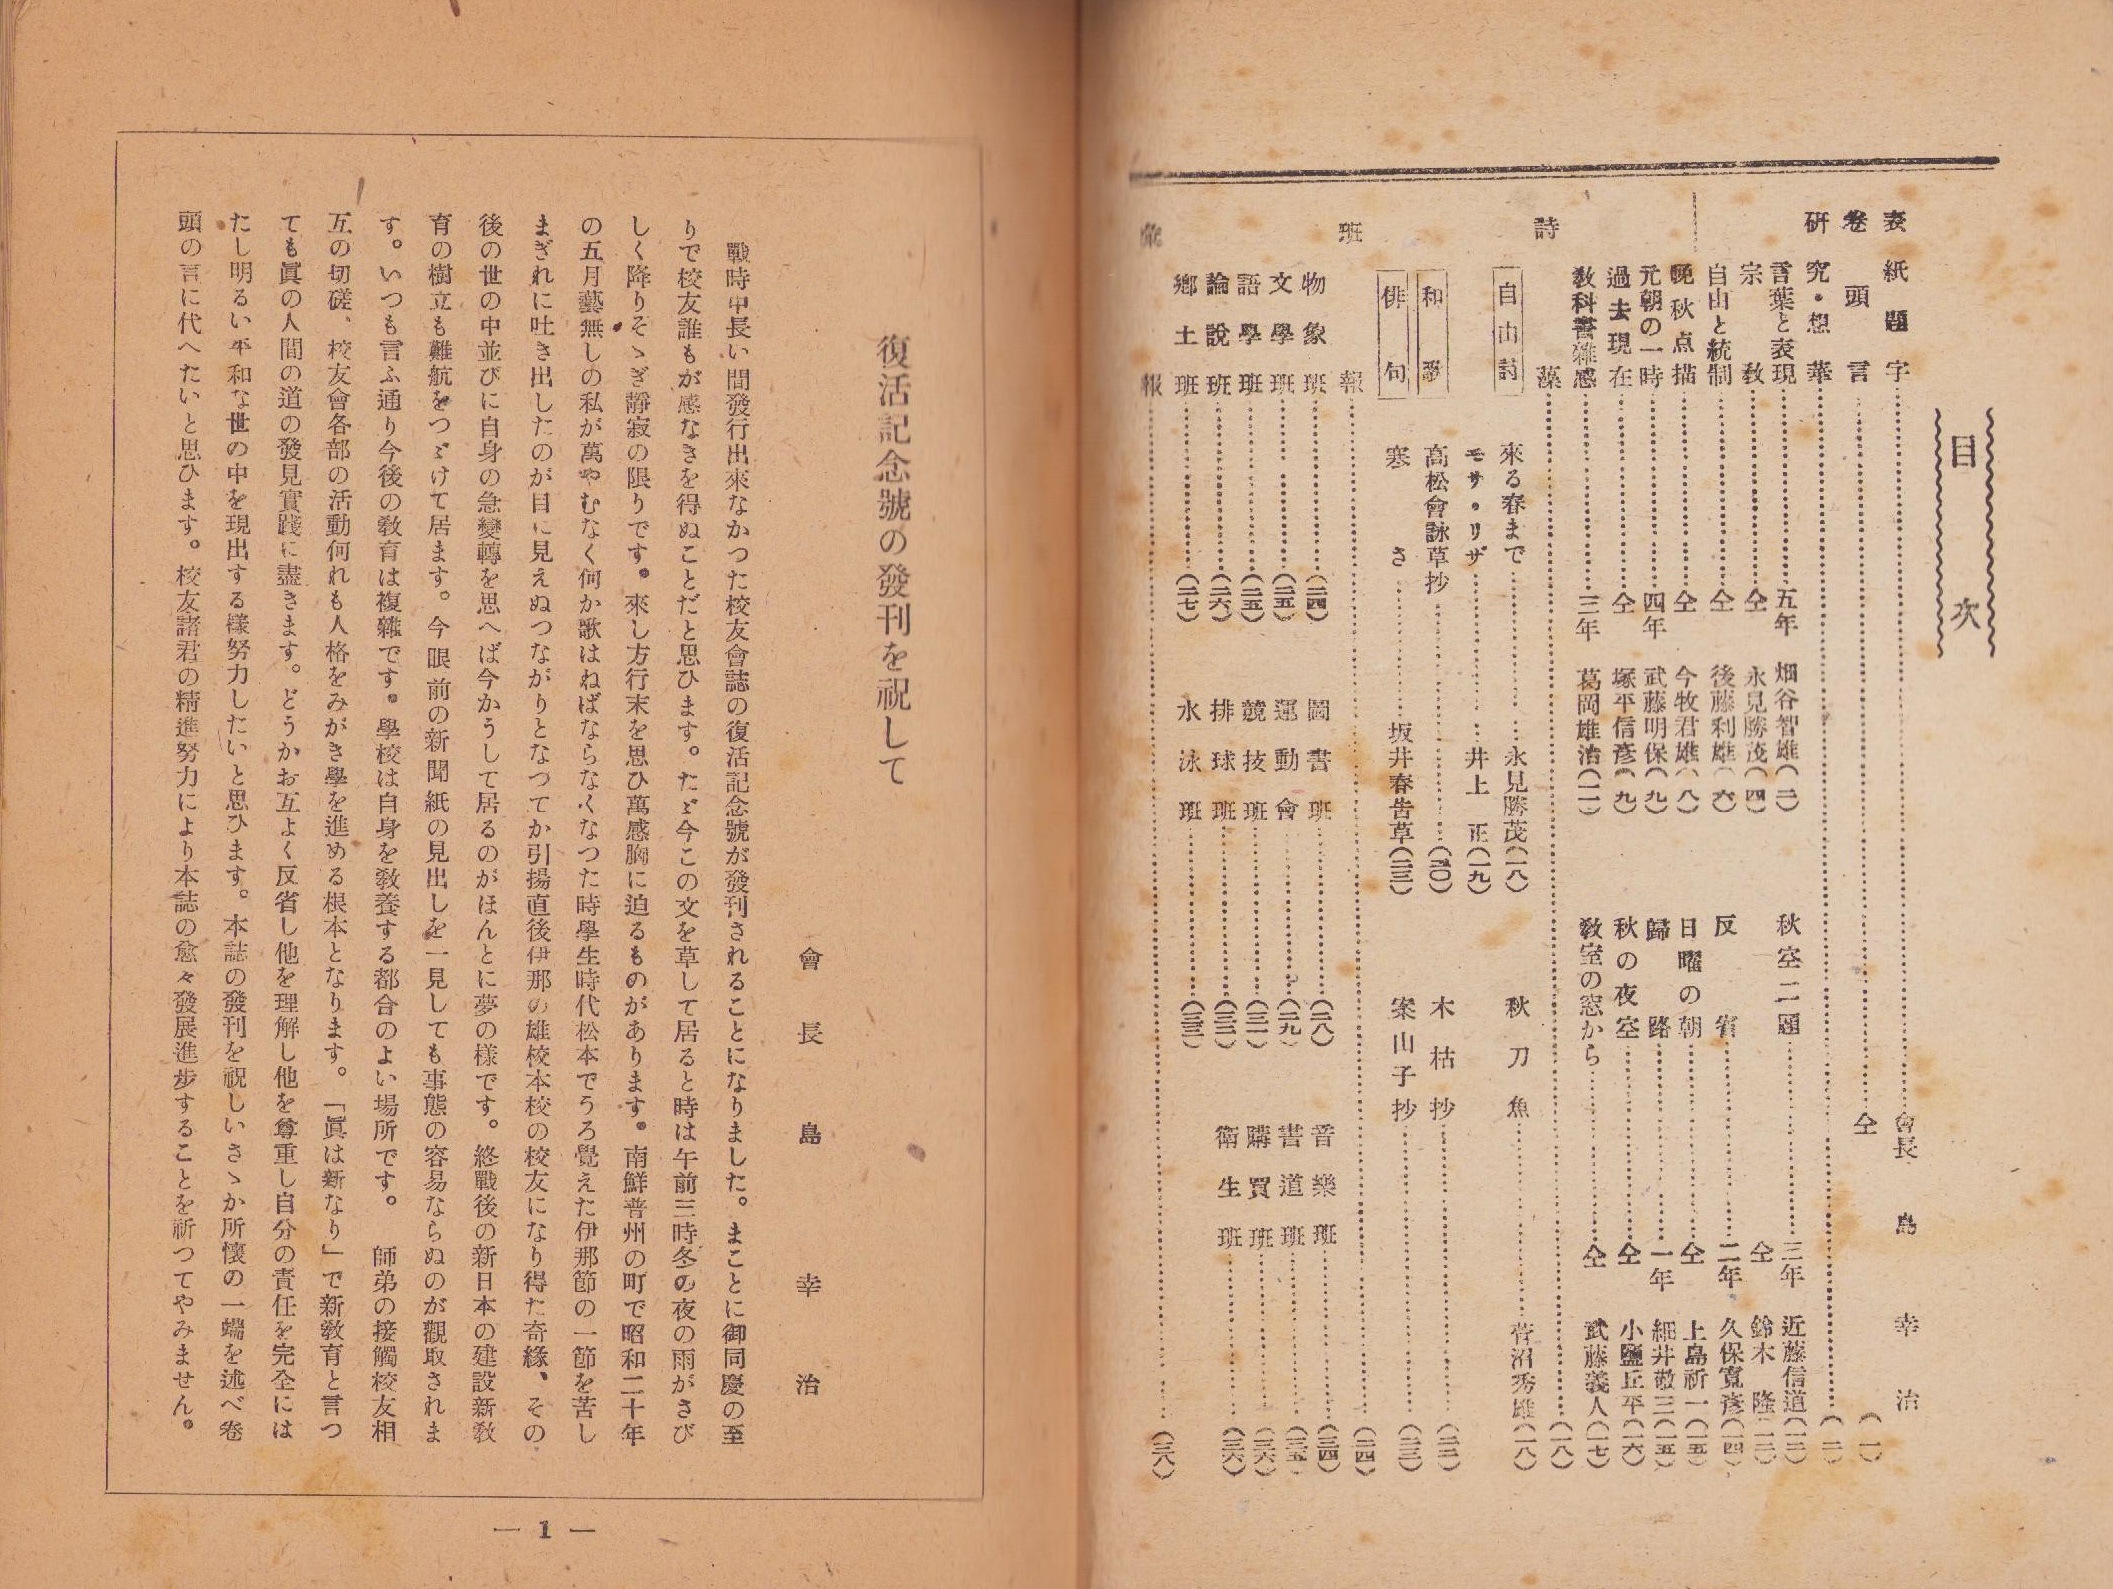 目次
表紙題字 會長 島幸治
卷頭言 仝 (一)
研究・想華 (二)
言葉と表現 五年 畑谷智雄(二)
秋空二題 三年 近藤信道(一二)
宗敎 仝 永見勝茂(四)
仝 鈴木隆
自由と統制 仝 後藤利雄(六)
反省 二年 久保寬彥(一四)
晩秋点描 仝 今牧君雄(八)
日曜の朝 仝 上島祈一(一五)
元朝の一時 四年 武藤明保(九)
歸路 一年 細井敬三(一五)
過去現在 仝 塚平信彥(九)
秋の夜空 仝 小鹽丘平(一六)
敎科書雜感 三年 葛岡雄治(一一)
敎室の窓から 仝 武藤義人(一七)
詩藻 (一八)
自由詩
來る春まで 永見勝茂(一八)
秋刀魚 菅沼秀雄(一八)
モサ・リザ 井上正(一九)
和歌
高松會詠草抄 (二〇)
木枯抄 (二二)
俳句
寒さ 坂井春告草(二三)
案山子抄 (二三)
班報 (二四)
物象班 (二四)
圖書班 (二八)
音樂班 (三四)
文學班 (二五)
運動會 (二九)
書道班 (三五)
語學班 (二五)
競技班 (三一)
購買班 (三六)
論說班 (二六)
排球班 (三二)
衛生班 (三六)
鄕土班 (二七)
水泳班 (三三)
報 (三八)
復活記念號の發刊を祝して
會長 島幸治
戰時中長い間發行出來なかつた校友會誌の復活記念號が發刊されることになりました。まことに御同慶の至
りで校友誰もが感なきを得ぬことだと思ひます。たゞ今この文を草して居ると時は午前三時冬の夜の雨がさび
しく降りそゝぎ靜寂の限りです。來し方行末を思ひ萬感胸に迫るものがあります。南鮮普州の町で昭和二十年
の五月藝無しの私が萬やむなく何か歌はねばならなくなつた時學生時代松本でうろ覺えた伊那節の一節を苦し
まぎれに吐き出したのが目に見えぬつながりとなつてか引揚直後伊那の雄校本校の校友になり得た奇緣、その
後の世の中並びに自身の急變轉を思へば今かうして居るのがほんとに夢の樣です。終戰後の新日本の建設新敎
育の樹立も難航をつゞけて居ます。今眼前の新聞紙の見出しを一見しても事態の容易ならぬのが觀取されま
す。いつも言ふ通り今後の敎育は複雜です。學校は自身を敎養する都合のよい場所です。師弟の接觸校友相
互の切磋、校友會各部の活動何れも人格をみがき學を進める根本となります。「眞は新なり」で新敎育と言つ
ても眞の人間の道の發見實踐に盡きます。どうかお互よく反省し他を理解し他を尊重し自分の責任を完全には
たし明るい平和な世の中を現出する樣努力したいと思ひます。本誌の發刊を祝しいさゝか所懷の一端を述べ卷
頭の言に代へたいと思ひます。校友諸君の精進努力により本誌の愈々發展進步することを祈つてやみません。
— 1 —